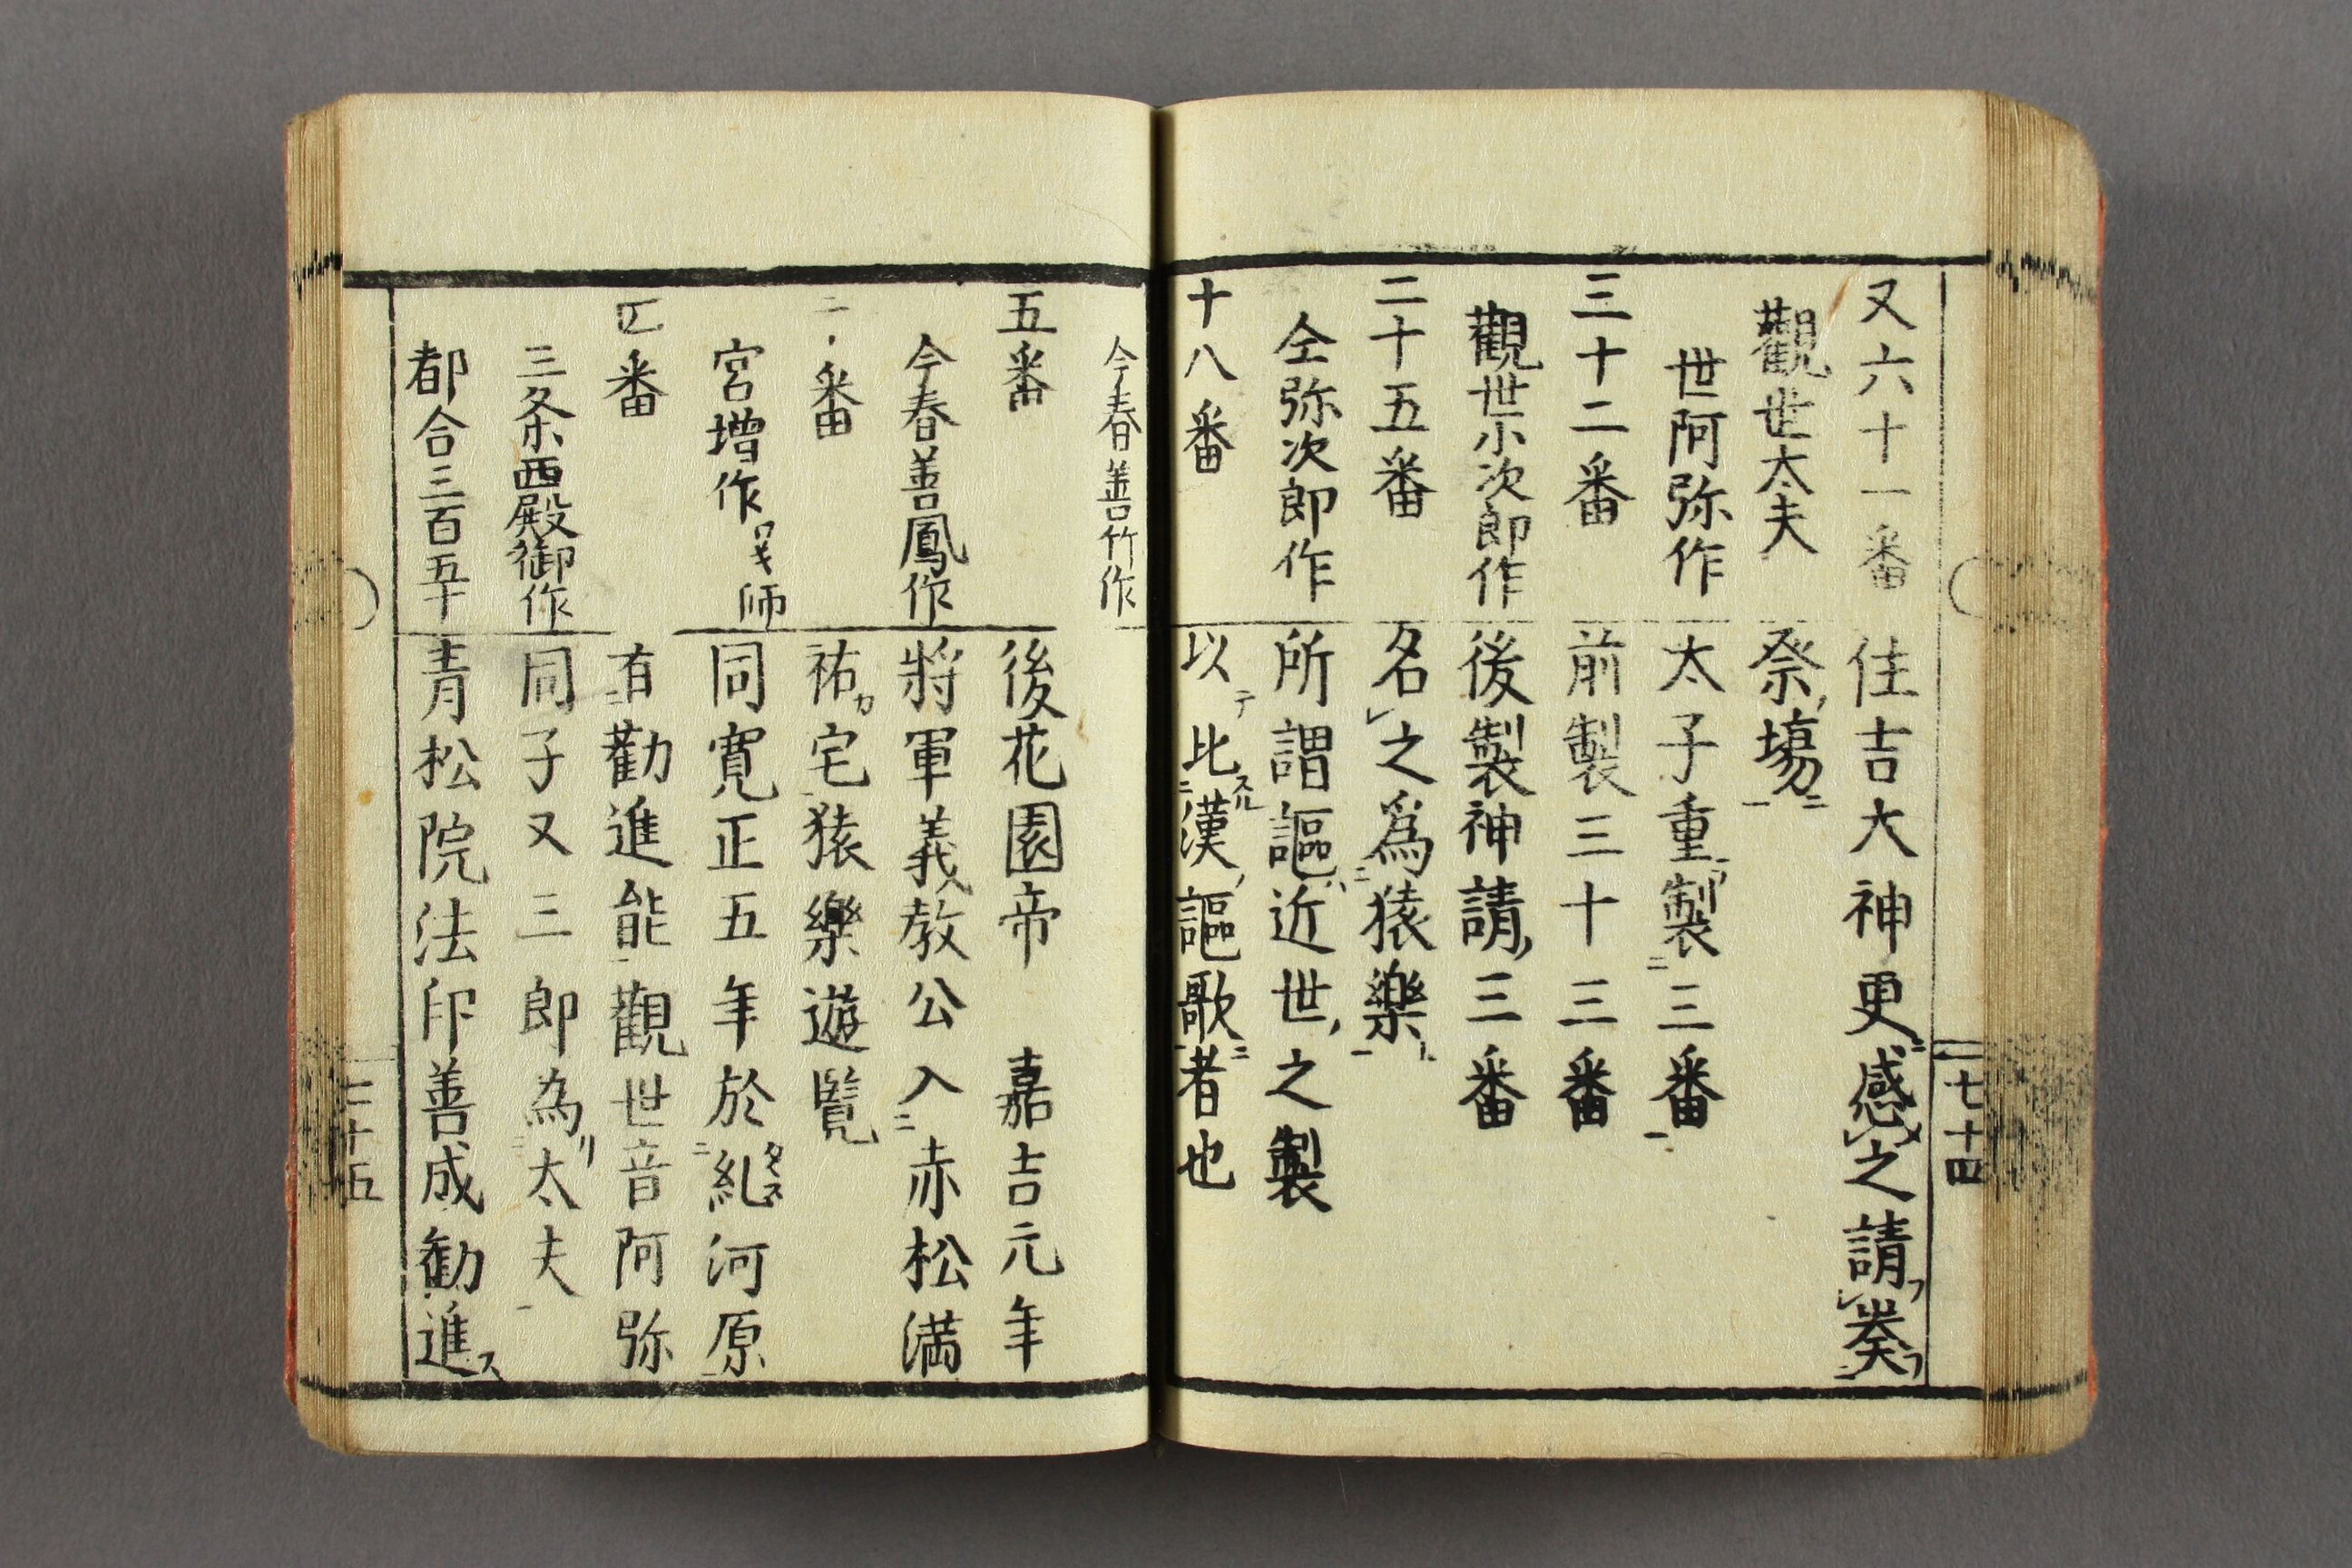 七十四
又六十一番
觀世太夫
世阿弥作
三十二番
觀世小次郎作
二十五番
仝弥次郎作
十八番
住吉大神更ニ感メ之請フ奏フ
祭ノ塲ニ
太子重テ製三番
前製三十三番
後製神請ノ三番
名之爲猿樂ト
所謂謳ハ近世ノ之製
以テ比スル漢ノ謳歌ニ者也
今春善竹作
五番
今春善鳳作
番
宮増作ワキ師
四番
三条西殿御作
都合三百五十
後花園帝 嘉吉元年
將軍義教公入赤松満
祐カ宅猿樂遊覧
同寛正五年於糺タヽス河原
有勸進能觀世音阿弥
同子又三郎為リ太夫
青松院法印善成勧進ス
二十五